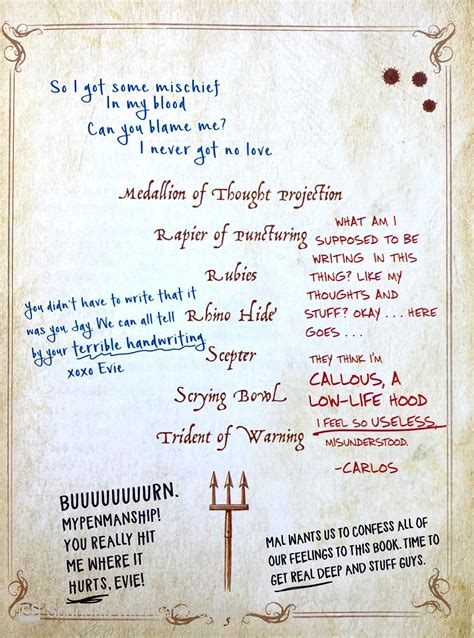 So I got some mischief
In my blood
Can you blame me?
I never got no love
Medallion of Thought Projection
Rapier of Puncturing
Rubies
Rhino Hide
Scepter
Scrying Bowl
Trident of Warning
WHAT AM I
SUPPOSED TO BE
WRITING IN THIS
THING? LIKE MY
THOUGHTS AND
STUFF? OKAY . . . HERE
GOES . . .
THEY THINK I'M
CALLOUS, A
LOW-LIFE HOOD
I FEEL SO USELESS,
MISUNDERSTOOD.
-CARLOS
you didn't have to write that it
was you Jay. We can all tell
by your terrible handwriting
xoxo Evie
BUUUUUUUURN.
MYPENMANSHIP!
YOU REALLY HIT
ME WHERE IT
HURTS, EVIE!
MAL WANTS US TO CONFESS ALL OF
OUR FEELINGS TO THIS BOOK. TIME TO
GET REAL DEEP AND STUFF GUYS.
5